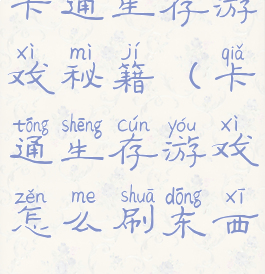 卡通生存游
xì mì jí qiǎ
戏秘籍（卡
tōng shēng cún yóu xì
通生存游戏
zěn me shuā dōng xī
怎么刷东西